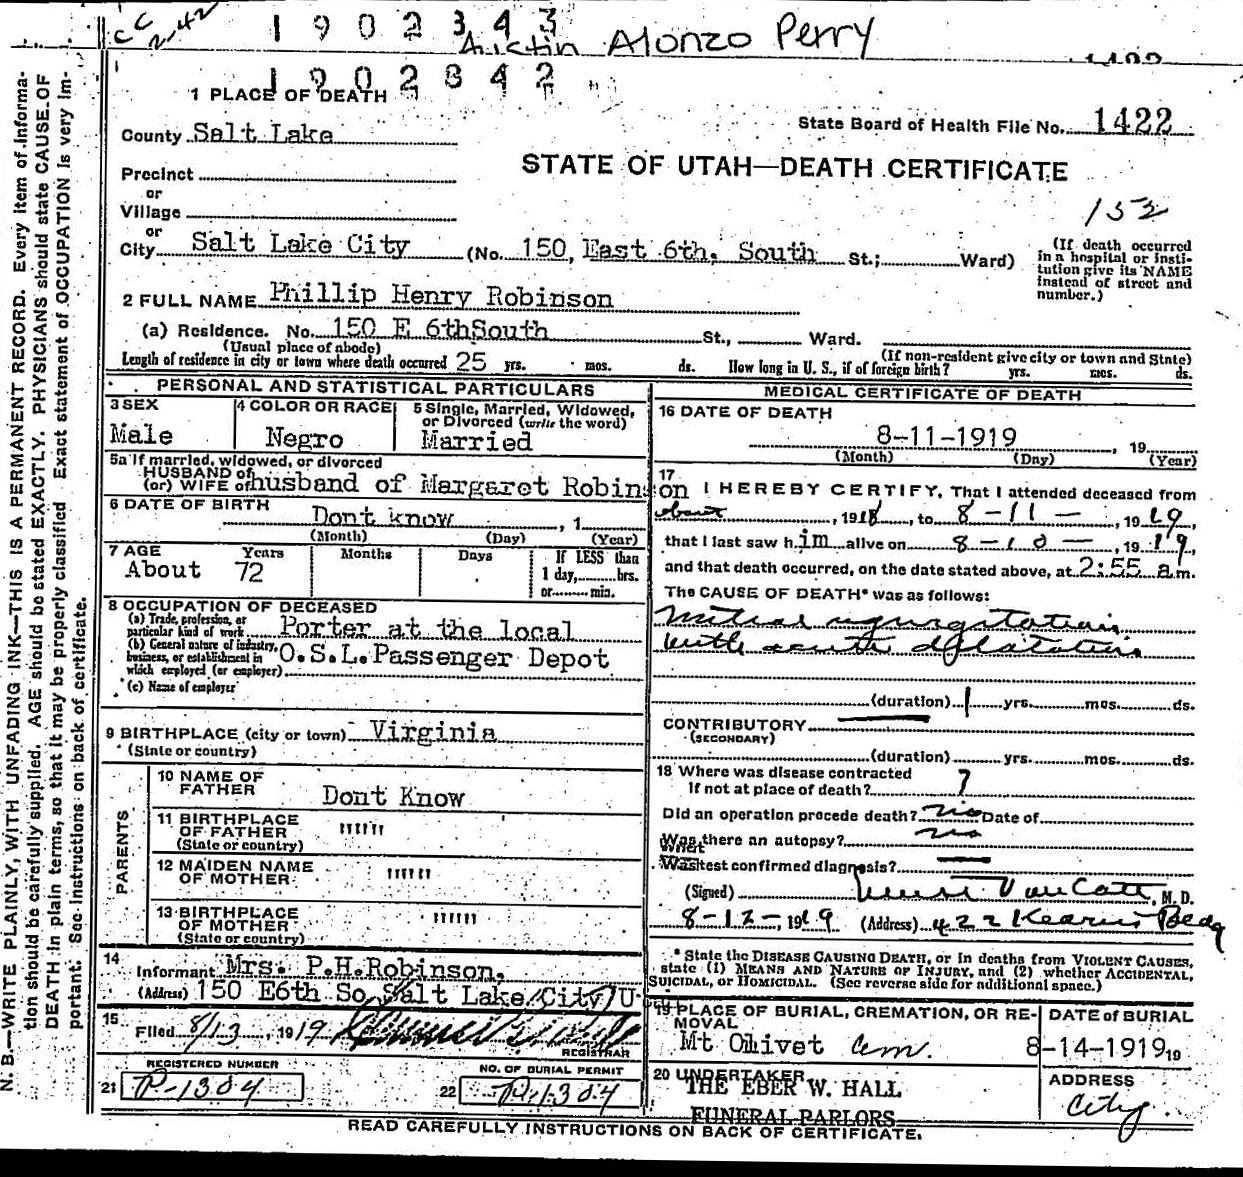 CC
2-42
1902343
Austin Alonzo Perry
1902342
1 PLACE OF DEATH
County Salt Lake
State Board of Health File No. 1422
STATE OF UTAH—DEATH CERTIFICATE
Precinct
or
Village
152
or
City Salt Lake City (No. 150, East 6th, South St.; Ward)
(If death occurred in a hospital or insti-
tution give its NAME
instead of street and
number.)
2 FULL NAME Phillip Henry Robinson
(a) Residence. No. 150 E 6thSouth St., Ward.
(Usual place of abode) (If non-resident give city or town and State)
Length of residence in city or town where death occurred 25 yrs. mos. ds. How long in U. S., if of foreign birth? yrs. mos. ds.
PERSONAL AND STATISTICAL PARTICULARS
3 SEX
Male
4 COLOR OR RACE
Negro
5 Single, Married, Widowed,
or Divorced (write the word)
Married
5a If married, widowed, or divorced
HUSBAND of
(or) WIFE of husband of Margaret Robinson
6 DATE OF BIRTH
Dont know , 1
(Month) (Day) (Year)
7 AGE Years Months Days
About 72
If LESS than
1 day, hrs.
or min.
8 OCCUPATION OF DECEASED
(a) Trade, profession, or
particular kind of work Porter at the local
(b) General nature of industry,
business, or establishment in
which employed (or employer) O.S.L.Passenger Depot
(c) Name of employer
9 BIRTHPLACE (city or town) Virginia
(State or country)
PARENTS
10 NAME OF
FATHER Dont Know
11 BIRTHPLACE
OF FATHER """
(State or country)
12 MAIDEN NAME
OF MOTHER """
13 BIRTHPLACE
OF MOTHER """
(State or country)
14
Informant Mrs. P.H.Robinson.
(Address) 150 E6th So, Salt Lake City, U
15
Filed 8/13, 1919
REGISTRAR
REGISTERED NUMBER
21 P-1304
NO. OF BURIAL PERMIT
22 P-1304
MEDICAL CERTIFICATE OF DEATH
16 DATE OF DEATH
8-11-1919 , 19
(Month) (Day) (Year)
17
I HEREBY CERTIFY, That I attended deceased from
about , 1918, to 8-11-, 1919,
that I last saw him alive on 8-10-, 1919,
and that death occurred, on the date stated above, at 2:55 a.m.
The CAUSE OF DEATH* was as follows:
Mitral regurgitation
with acute dilatation
(duration) 1 yrs. mos. ds.
CONTRIBUTORY
(SECONDARY)
(duration) yrs. mos. ds.
18 Where was disease contracted
If not at place of death? ?
Did an operation precede death? no Date of
Was there an autopsy? no
What test confirmed diagnosis?
(Signed) Van Cott, M. D.
8-12-, 1919 (Address) 422 Kearns Bldg
* State the DISEASE CAUSING DEATH, or in deaths from VIOLENT CAUSES,
state (1) MEANS AND NATURE OF INJURY, and (2) whether ACCIDENTAL,
SUICIDAL, or HOMICIDAL. (See reverse side for additional space.)
19 PLACE OF BURIAL, CREMATION, OR RE-
MOVAL
Mt Olivet Cem.
DATE of BURIAL
8-14-1919 19
20 UNDERTAKER
THE EBER W. HALL
FUNERAL PARLORS
ADDRESS
City
READ CAREFULLY INSTRUCTIONS ON BACK OF CERTIFICATE.
N. B.—WRITE PLAINLY, WITH UNFADING INK—THIS IS A PERMANENT RECORD. Every item of informa-
tion should be carefully supplied. AGE should be stated EXACTLY. PHYSICIANS should state CAUSE OF
DEATH in plain terms, so that it may be properly classified. Exact statement of OCCUPATION is very im-
portant. See instructions on back of certificate.